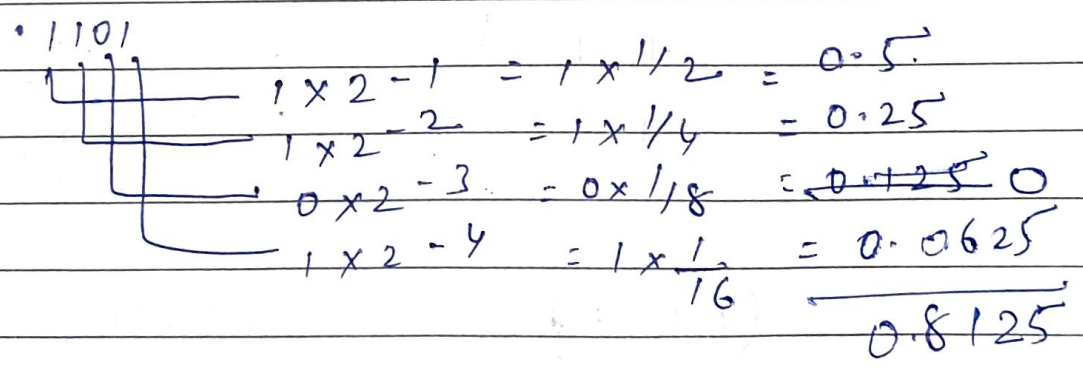 .1101
1 × 2 -1 = 1 × 1/2 = 0.5.
1 × 2 -2 = 1 × 1/4 = 0.25
0 × 2 -3 = 0 × 1/8 = 0.125 0
1 × 2 -4 = 1 × 1/16 = 0.0625
0.8125